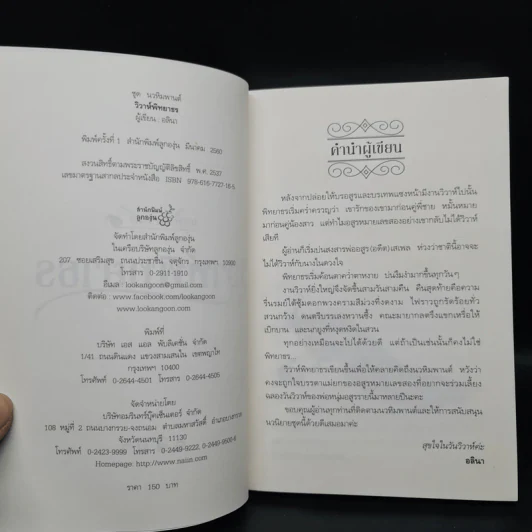 ชุด นวหิมพานต์
วิวาห์พิทยาธร
ผู้เขียน อลินา
พิมพ์ครั้งที่ 1 สำนักพิมพ์ลูกองุ่น มีนาคม 2560
สงวนลิขสิทธิ์ตามพระราชบัญญัติลิขสิทธิ์ พ.ศ. 2537
เลขมาตรฐานสากลประจำหนังสือ ISBN 978-616-7727-18-5
สำนักพิมพ์
ลูกองุ่น
จัดทำโดยสำนักพิมพ์ลูกองุ่น
ในเครือบริษัทลูกองุ่น จำกัด
207 ซอยเสริมสุข ถนนประชาชื่น จตุจักร กรุงเทพฯ 10900
โทรสาร 0-2911-1910
อีเมล : lookangoon@gmail.com
ติดต่อ : www.facebook.com/lookangoon
www.lookangoon.com
พิมพ์ที่
บริษัท เอส แอล พับลิเคชั่น จำกัด
1/41 ถนนดินแดง แขวงสามเสนใน เขตพญาไท
กรุงเทพฯ 10400
โทรศัพท์ 0-2644-4501 โทรสาร 0-2644-4505
จัดจำหน่ายโดย
บริษัทอมรินทร์บุ๊คเซ็นเตอร์ จำกัด
108 หมู่ที่ 2 ถนนบางกรวย-จงถนอม ตำบลมหาสวัสดิ์ อำเภอบางกรวย
จังหวัดนนทบุรี 11130
โทรศัพท์ 0-2423-9999 โทรสาร 0-2449-9222, 0-2449-9500-6
Homepage: http://www.naiin.com
ราคา 150 บาท
คำนำผู้เขียน
หลังจากปล่อยให้บรอสูรและบรเทพแซงหน้ามีงานวิวาห์ไปนั้น
พิทยาธรเริ่มคร่ำครวญว่า เขารักของเขามาก่อนคู่พี่ชาย หมั้นหมาย
มาก่อนคู่น้องสาว แต่ทำไมอสูรหมายเลขสองอย่างเขากลับไม่ได้วิวาห์
เสียที
ผู้อ่านก็เริ่มบ่นสงสารพ่ออสูร(อดีต)เสเพล ห่วงว่าชาตินี้อาจจะ
ไม่ได้วิวาห์กับนางในดวงใจ
พิทยาธรเริ่มค้อนตาคว่ำตาหงาย บ่นงึมงำมากขึ้นทุกวันๆ
งานวิวาห์ยิ่งใหญ่จึงจัดขึ้นสามวันสามคืน คืนสุดท้ายคือความ
รื่นรมย์ใต้ซุ้มดอกพวงครามสีม่วงทิ้งดงาม ไพราวถูกขัดร้อยทั่ว
สวนกว้าง ดนตรีบรรเลงหวานซึ้ง คณะผามาลาครึ่งแขกเหรื่อให้
เบิกบาน และนกยูงที่หงุดหงิดในสวน
ทุกอย่างเหมือนจะไปได้ด้วยดี แต่ถ้าเป็นเช่นนั้นก็คงไม่ใช่
พิทยาธร...
วิวาห์พิทยาธรเขียนขึ้นเพื่อให้คลายคิดถึงนวหิมพานต์ หวังว่า
คงจะถูกใจบรรดาแม่ยกของอสูรหมายเลขสองที่อยากจะร่วมเลี้ยง
ฉลองวันวิวาห์ของพ่อหนุ่มอสูรรายนี้มาหลายปีนะคะ
ขอบคุณผู้อ่านทุกท่านที่ติดตามนวหิมพานต์และให้การสนับสนุน
นวนิยายชุดนี้ด้วยดีเสมอมาค่ะ
สุขใจในวันวิวาห์ค่ะ
อลินา